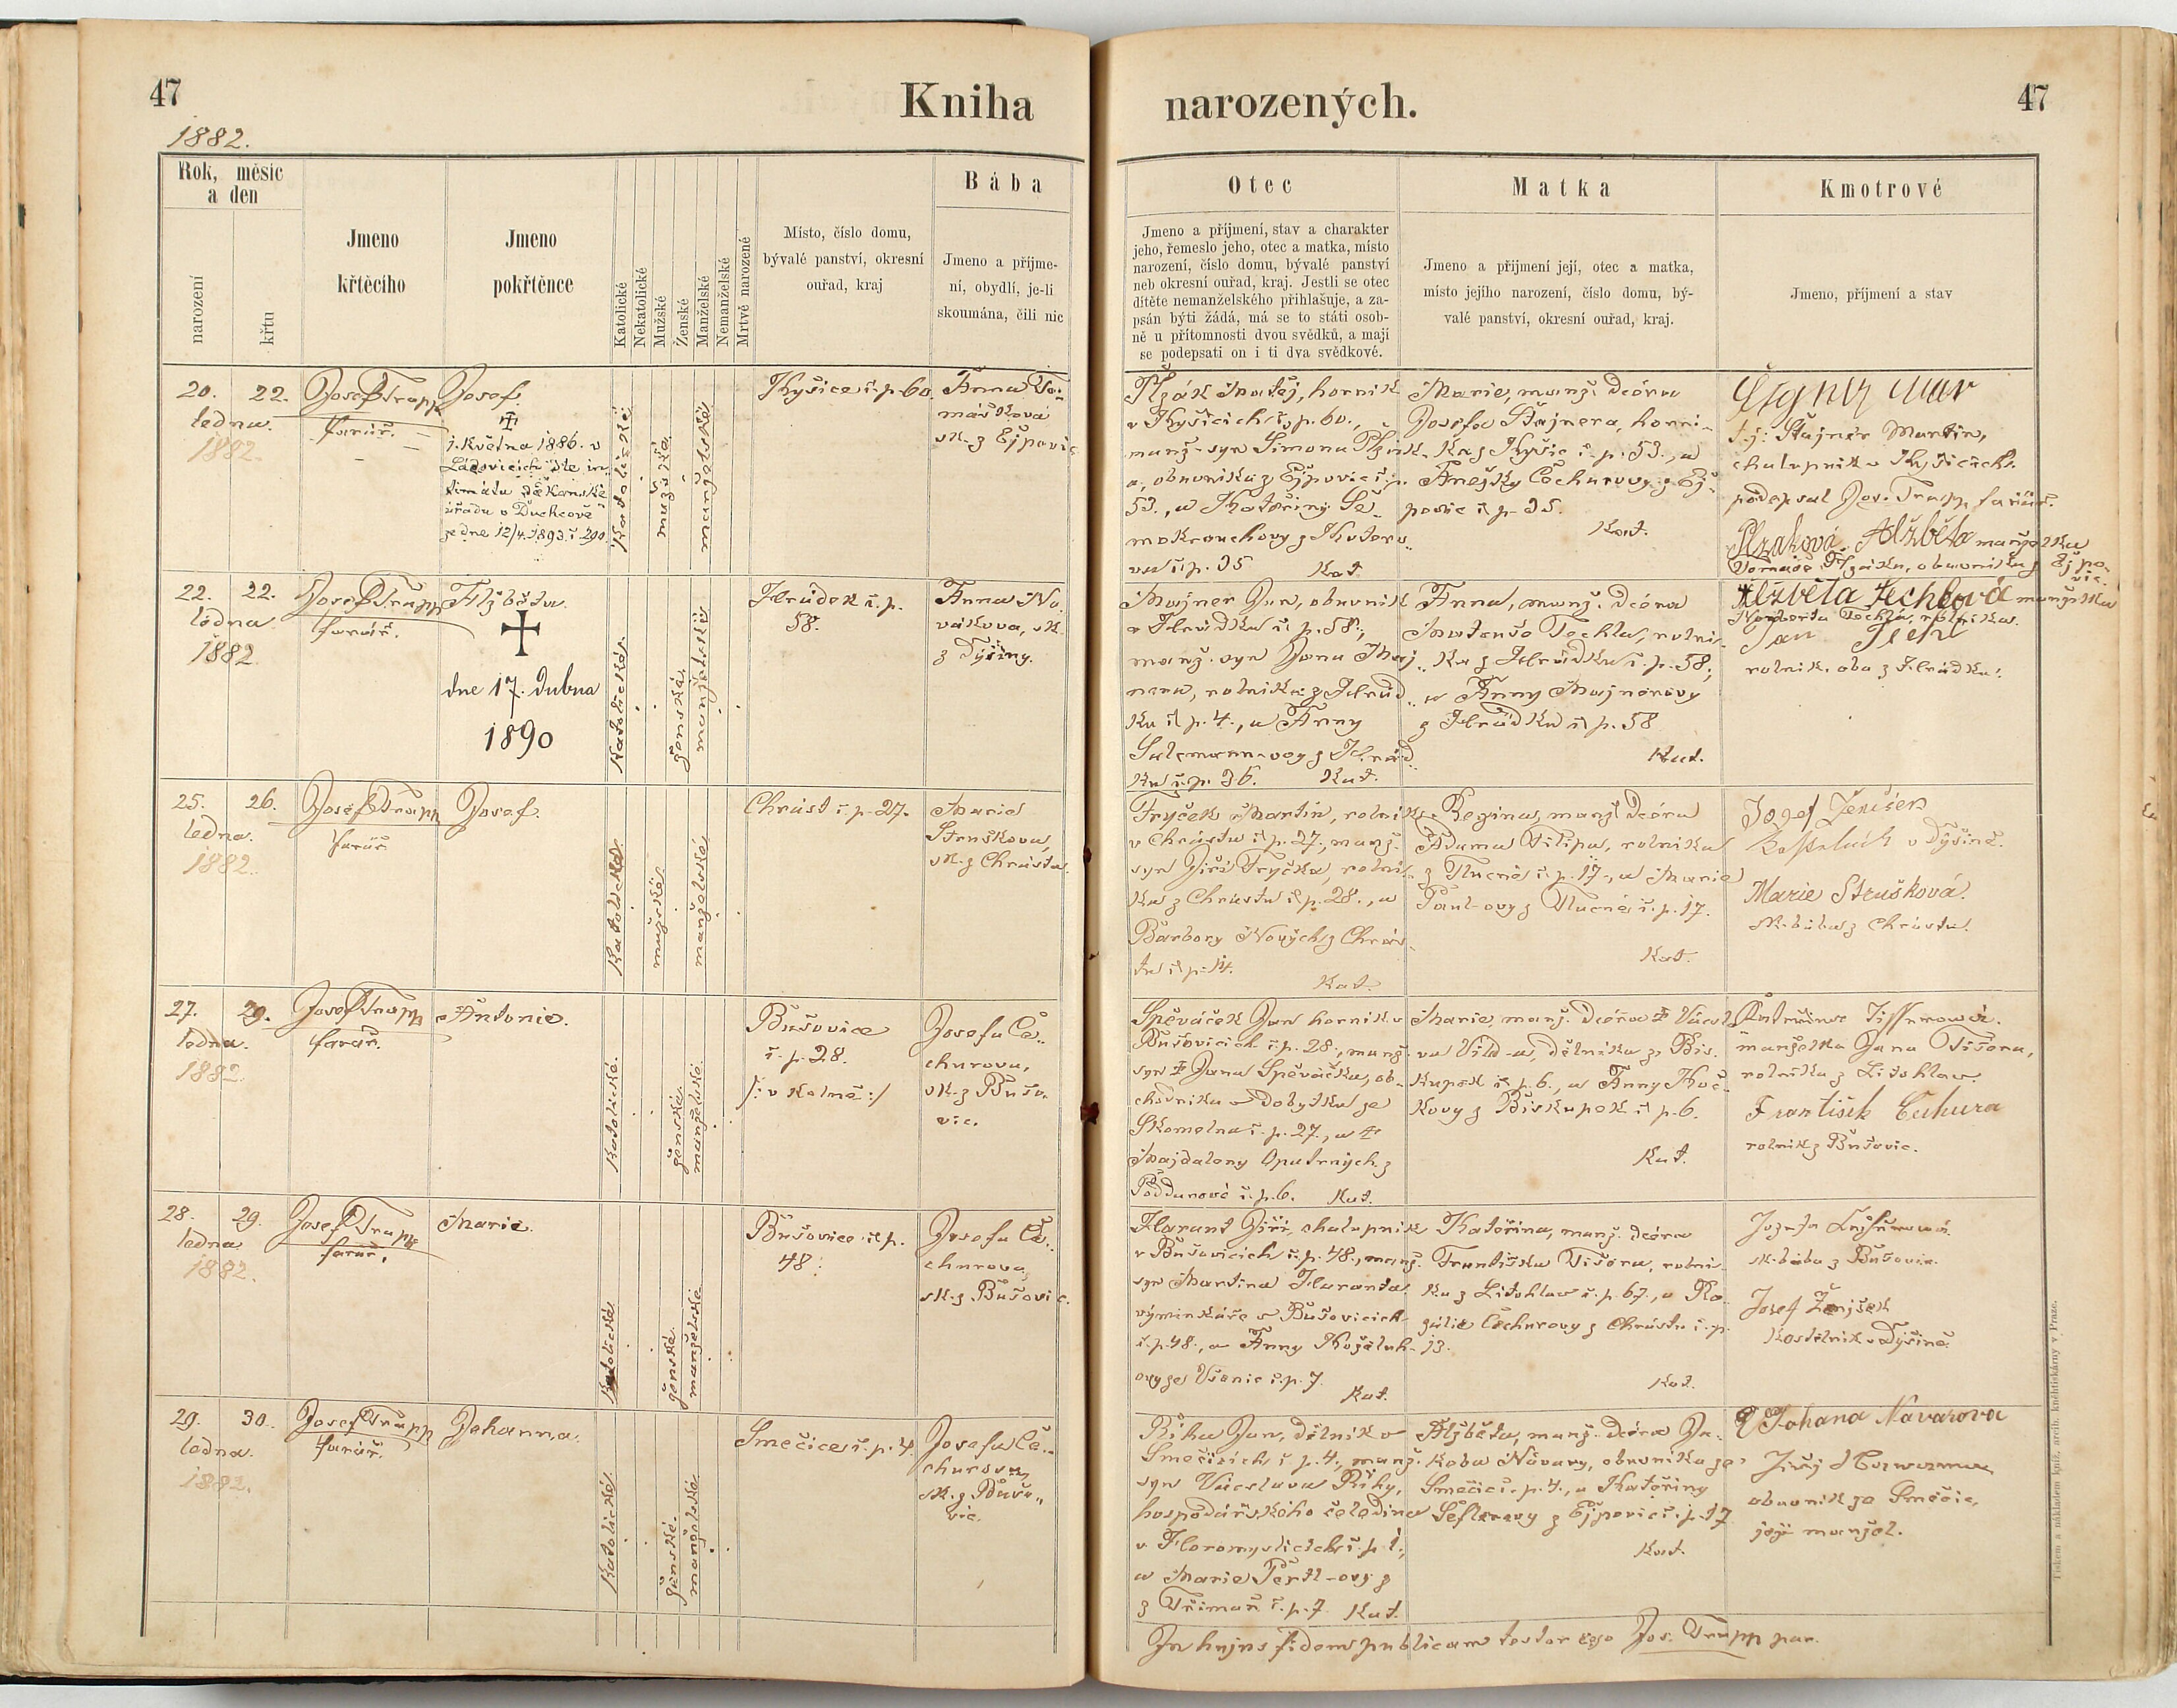 47
Kniha
narozených.
47
1882.
Rok, měsíc
a den
narození
křtu
Jmeno
křtěcího
Jmeno
pokřtěnce
Katolické
Nekatolické
Mužské
Ženské
Manželské
Nemanželské
Mrtvě narozené
Místo, číslo domu,
bývalé panství, okresní
ouřad, kraj
Bába
Jmeno a přijme-
ní, obydlí, je-li
skoumána, čili nic
Otec
Jmeno a příjmení, stav a charakter
jeho, řemeslo jeho, otec a matka, místo
narození, číslo domu, bývalé panství
neb okresní ouřad, kraj. Jestli se otec
dítěte nemanželského přihlašuje, a za-
psán býti žádá, má se to státi osob-
ně u přítomnosti dvou svědků, a mají
se podepsati on i ti dva svědkové.
Matka
Jmeno a přijmení její, otec a matka,
místo jejího narození, číslo domu, bý-
valé panství, okresní ouřad, kraj.
Kmotrové
Jmeno, příjmení a stav
20. 22.
ledna.
1882.
Josef Trapp
farář.
Josef.
1. května 1886. v
Ládovicích dle in-
timátu děkanské
úřadu v Duchcově
ze dne 12/4. 1893. č. 290.
Katolické
mužské
manželské
Kyšice č. p. 60.
Anna To-
mášková
zk. z Ejpovic
Plzák Matěj, horník
v Kyšicích č. p. 60.,
manž. syn Simona Plzák-
a, obuvníka z Ejpovic č. p.
53., a Kateřiny
č. p. 35 Kat.
Marie, manž. dcéra
Josefa Štajnera, horní-
ka z Kyšic č. p. 53., a
Anežky Čechurovy z Ej-
povic č. p. 35.
Kat.
t. j.: Štajner Martin,
chalupník v Kyšicích.
podepsal Jos. Trapp farář.
Plzaková Alžběta manželka
Tomáše Plzáka, obuvníka z Ejpo-
vic.
22. 22.
ledna
1882
Josef Trapp
farář.
Alžběta.
dne 17. dubna
1890
Katolické
ženské
manželské
Hrádek č. p.
58.
Anna No-
vákova, zk.
z Dýšiny.
Majner Jan, obuvník
v Hrádku č. p. 58.,
manž. syn Jana Maj-
nera, rolníka z Hrád-
ku č. p. 4., a Anny
Salcmann-ovy z Hrád-
ku č. p. 36. Kat.
Anna, manž. dcéra
Matouše Techla, rolní-
ka z Hrádku č. p. 58.,
a Anny Majnerovy
z Hrádku č. p. 58
Kat.
Alžběta Techlová manželka
Norberta Techla, rolníka.
Jan Techl
rolník. oba z Hrádku.
25. 26.
ledna.
1882.
Josef Trapp
farář
Josef.
Katolické
mužské
manželské
Chrást č. p. 27.
Marie
Struškova,
zk. z Chrástu.
Tryček Martin, rolník
v Chrástu č. p. 27., manž.
syn Jiří Tryčka, rolní-
ka z Chrástu č. p. 28., a
Barbory Nových z Chrás-
tu č. p. 14.
Kat.
Regina, manž. dcéra
Adama Filipa, rolníka
z Tlucné č. p. 17., a Marie
Pául-ovy z Tlucné č. p. 17.
Kat.
Josef Ženíšek
Kostelník v Dýšině.
Marie Strušková.
zk. bába z Chrástu.
27. 29.
ledna.
1882
Josef Trapp
farář.
Antonie.
Katolické
ženské
manželské
Bušovice
č. p. 28.
/: v kolně :/
Josefa Če-
churova,
zk. z Bušo-
vic.
Spěváček Jan horník v
Bušovicích č. p. 28., manž.
syn Jana Spěváčka, ob-
chodníka v dobytku ze
Skomelna č. p. 27., a
Majdaleny Opatrných z
č. p. 6. Kat.
Marie, manž. dcéra Václ-
ava Vild-a, dělníka z Bis-
kupek č. p. 6., a Anny Koč-
kovy z Biskupek č. p. 6.
Kat.
manželka Jana Tišera,
rolníka z Litohlav.
František Čechura
rolník z Bušovic.
28. 29.
ledna
1882.
Josef Trapp
farář.
Marie.
Katolické
ženské
manželské
Bušovice č. p.
48.
Josefa Če-
churova
zk. z Bušovic.
Harant Jiří, chalupník
v Bušovicích č. p. 48., manž.
syn Martina Haranta
výminkáře v Bušovicích
č. p. 48., a Anny Koželuh-
ovy ze Všenic č. p. 7.
Kat.
Kateřina, manž. dcéra
Františka Tišera, rolní-
ka z Litohlav č. p. 67., a Ro-
zálie Čechurovy z Chrástu č. p.
13.
Kat.
zk. bába z Bušovic.
Josef Ženjšek
Kostelník v Dýšině
29. 30.
ledna.
1882.
Josef Trapp
farář.
Johanna
Katolické
ženské
manželské
Smečice č. p. 4
Josefa Če-
churova,
zk. z Bušo-
vic.
Říha Jan, dělník v
Smečicích č. p. 4., manž.
syn Václava Říhy,
hospodářského čeledína
v Horomyslicích č. p. 1.,
a Marie Pertl-ovy z
z Třiman č. p. 7. Kat.
Alžběta, manž. dcéra Ja-
koba Návary, obuvníka ze
Smečic č. p. 4., a Kateřiny
Šeflerovy z Ejpovic č. p. 17
Kat.
Johana Navarova
obuvník ze Smečic,
její manžel.
In hujus fidem publicam testor ego Jos. Trapp par.
Tiskem a nákladem kníž. arcib. knihtiskárny v Praze.